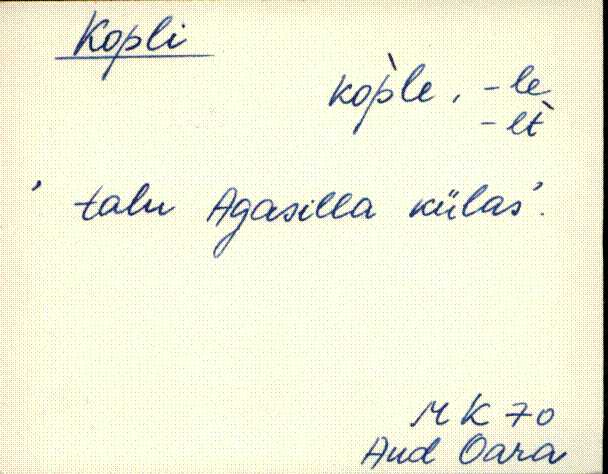 Kopli
kop̀le, -le
-lt̀
' talu Agasilla külas'.
MK 70
Aud Oara